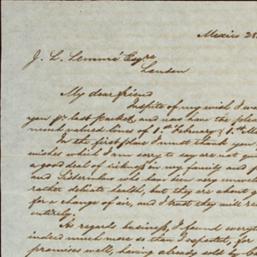 Mexico 28
J. L. Lemmé Esqre
London
My dear friend
Inspite of my wish I was
you pr last packet, and now have the pleas
much valued lines of 1st February & 1st Ma
In the first place I must thank you
wishes which I am sorry to say are not qui
a good deal of sickness in my family and
and Liberules who have been very unwell
rather delicate health, but they are about g
for a change of air, and I trust they will re
entirely.
As regards business, I found every
indeed much more so than I expected, for
promises well, having already sold by